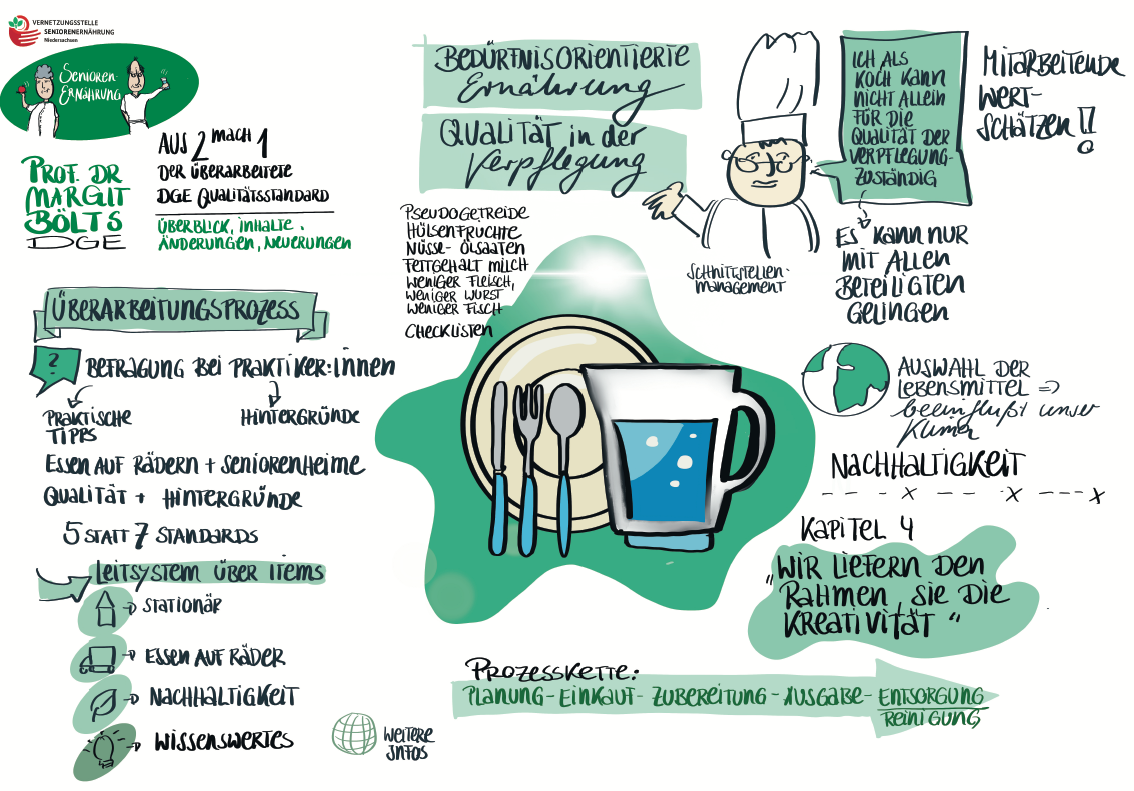 VERNETZUNGSSTELLE
SENIORENERNÄHRUNG
Niedersachsen
SENIOREN-
ERNÄHRUNG
PROF. DR
MARGIT
BÖLTS
DGE
AUS 2 MACH 1
DER ÜBERARBEITETE
DGE QUALITÄTSSTANDARD
ÜBERBLICK, INHALTE,
ÄNDERUNGEN, NEUERUNGEN
ÜBERARBEITUNGSPROZESS
?
BEFRAGUNG BEI PRAKTIKER:INNEN
PRAKTISCHE
TIPPS
HINTERGRÜNDE
ESSEN AUF RÄDERN + SENIORENHEIME
QUALITÄT + HINTERGRÜNDE
5 STATT 7 STANDARDS
LEITSYSTEM ÜBER ITEMS
STATIONÄR
ESSEN AUF RÄDER
NACHHALTIGKEIT
WISSENSWERTES
WEITERE
INFOS
BEDÜRFNISORIENTIERTE
Ernährung
QUALITÄT in der
Verpflegung
PSEUDOGETREIDE
HÜLSENFRÜCHTE
NÜSSE- ÖLSAATEN
FETTGEHALT MILCH
WENIGER FLEISCH,
WENIGER WURST
WENIGER FISCH
CHECKLISTEN
SCHNITTSTELLEN-
MANAGEMENT
ICH ALS
KOCH KANN
NICHT ALLEIN
FÜR DIE
QUALITÄT DER
VERPFLEGUNG-
ZUSTÄNDIG
MITARBEITENDE
WERT-
SCHÄTZEN!!
ES KANN NUR
MIT ALLEN
BETEILIGTEN
GELINGEN
AUSWAHL DER
LEBENSMITTEL =>
beeinflußt unser
Klima
NACHHALTIGKEIT
KAPITEL 4
„WIR LIEFERN DEN
RAHMEN, SIE DIE
KREATIVITÄT“
PROZESSKETTE:
PLANUNG - EINKAUF - ZUBEREITUNG - AUSGABE - ENTSORGUNG
REINIGUNG